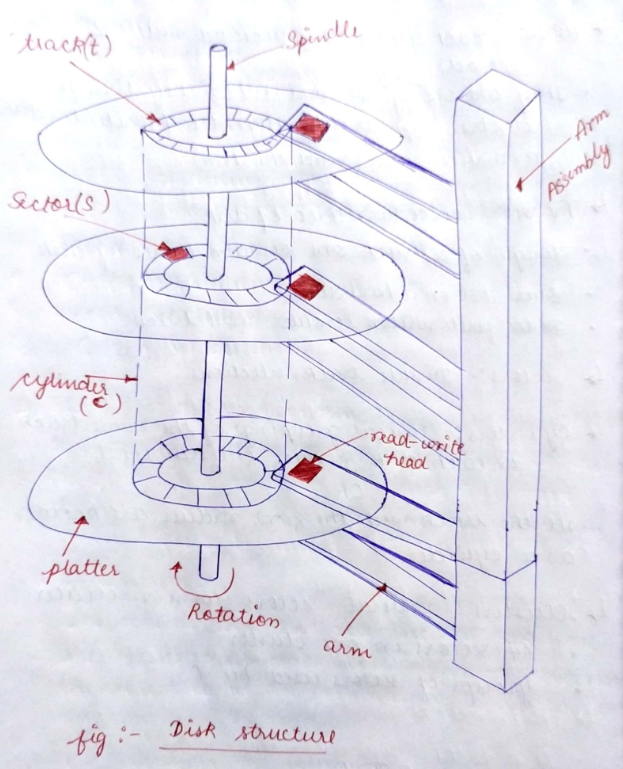 track(t)
Spindle
Arm
Assembly
Sector(S)
cylinder
(c)
read-write
head
platter
Rotation
arm
fig :- Disk structure